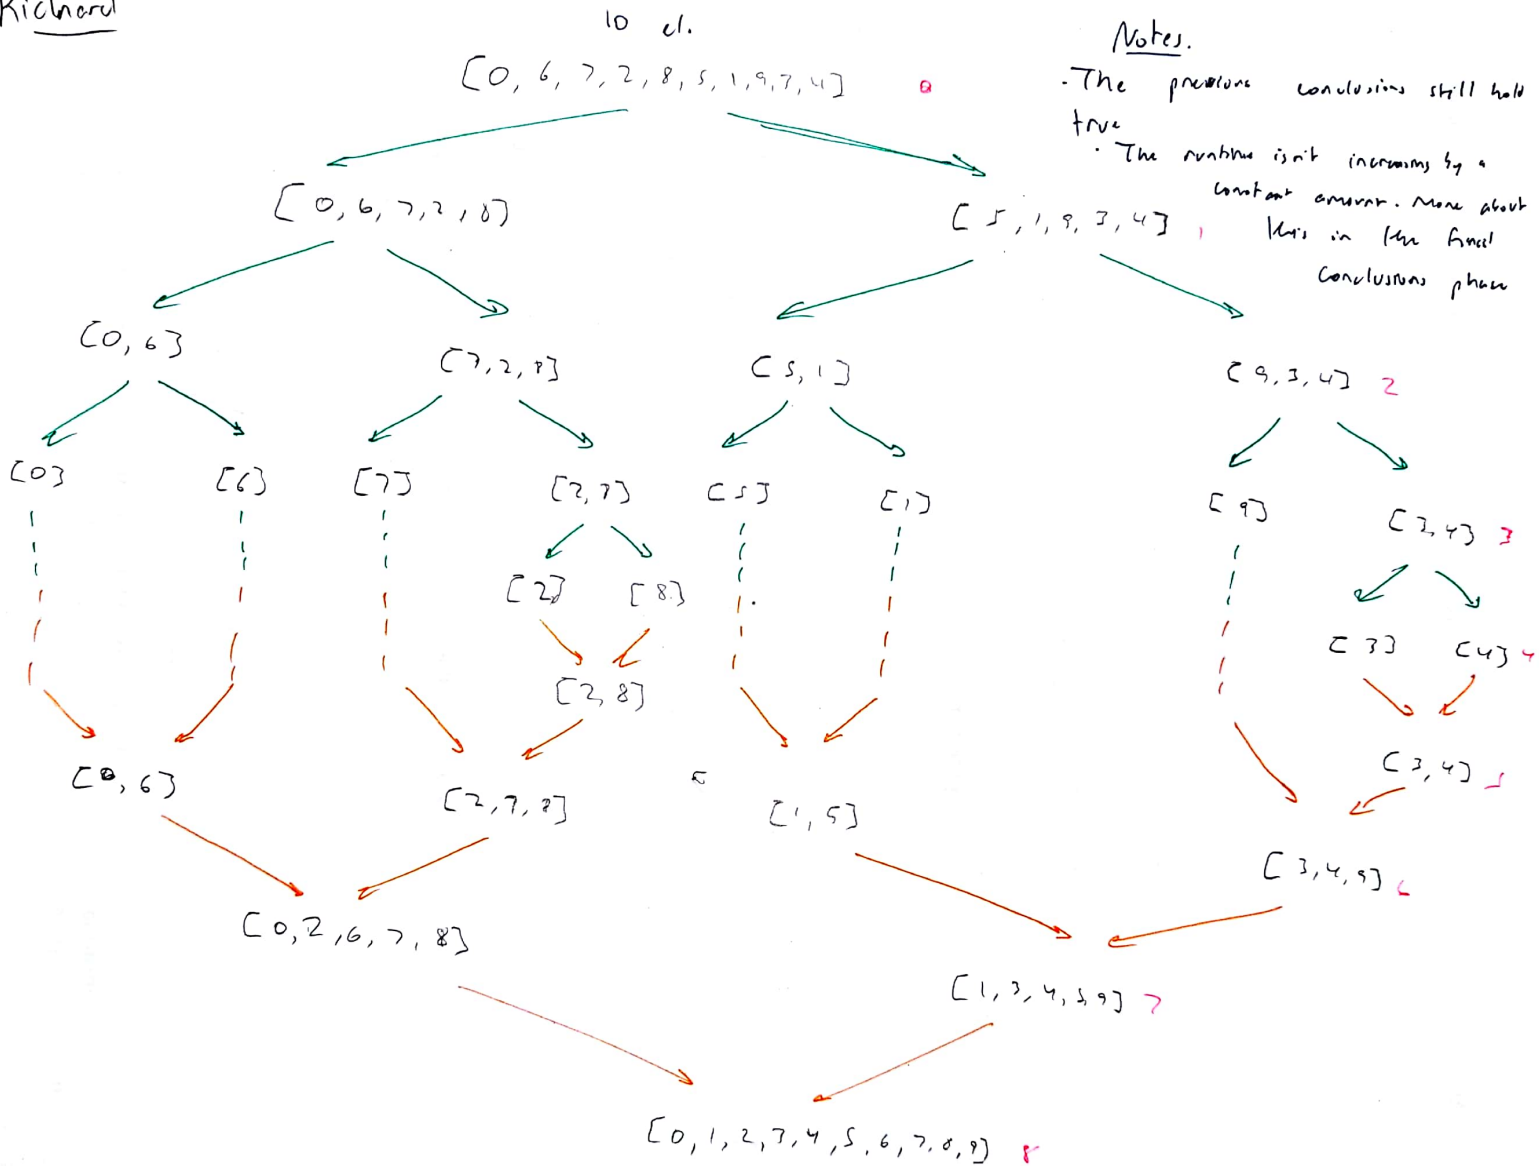 Richard
10 el.
[0, 6, 7, 2, 8, 5, 1, 9, 3, 4] 0
Notes.
· The previous conclusions still hold
true
· The runtime isn't increasing by a
constant amount. More about
this in the final
conclusions phase
[0, 6, 7, 2, 8]
[5, 1, 9, 3, 4] 1
[0, 6]
[7, 2, 8]
[5, 1]
[9, 3, 4] 2
[0]
[6]
[7]
[2, 8]
[5]
[1]
[9]
[3, 4] 3
[2]
[8]
[3]
[4] 4
[2, 8]
[3, 4] 5
[0, 6]
[2, 7, 8]
[
[1, 5]
[3, 4, 9] 6
[0, 2, 6, 7, 8]
[1, 3, 4, 5, 9] 7
[0, 1, 2, 3, 4, 5, 6, 7, 8, 9] 8